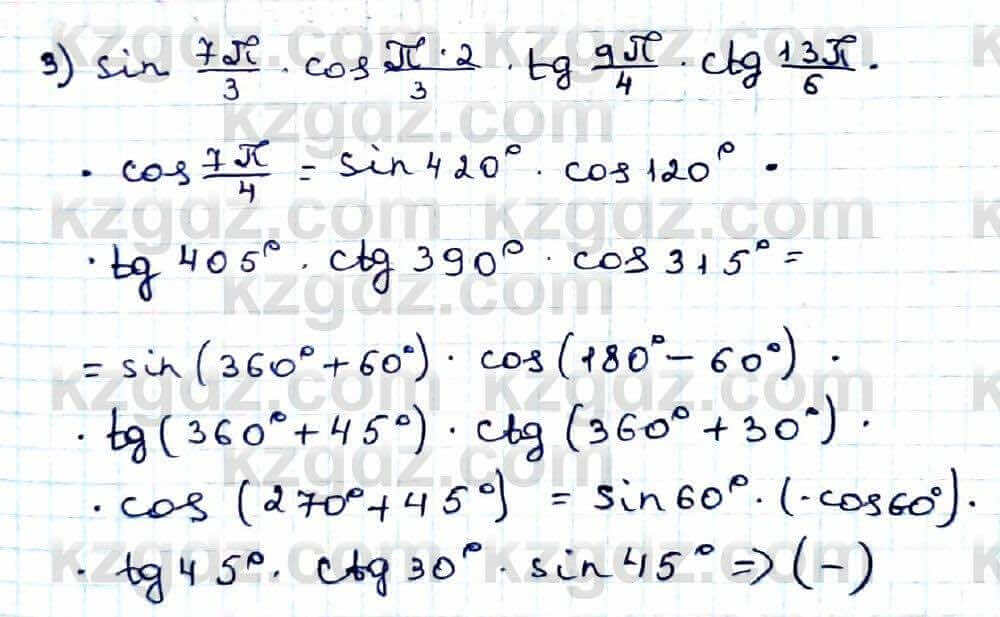 3) sin 7π/3 · cos π·2/3 · tg 9π/4 · ctg 13π/6 ·
· cos 7π/4 = sin 420° · cos 120° ·
· tg 405° · ctg 390° · cos 315° =
= sin (360° + 60°) · cos (180° - 60°) ·
· tg (360° + 45°) · ctg (360° + 30°) ·
· cos (270° + 45°) = sin 60° · (-cos 60°) ·
· tg 45° · ctg 30° · sin 45° => (-)
kzgdz.com